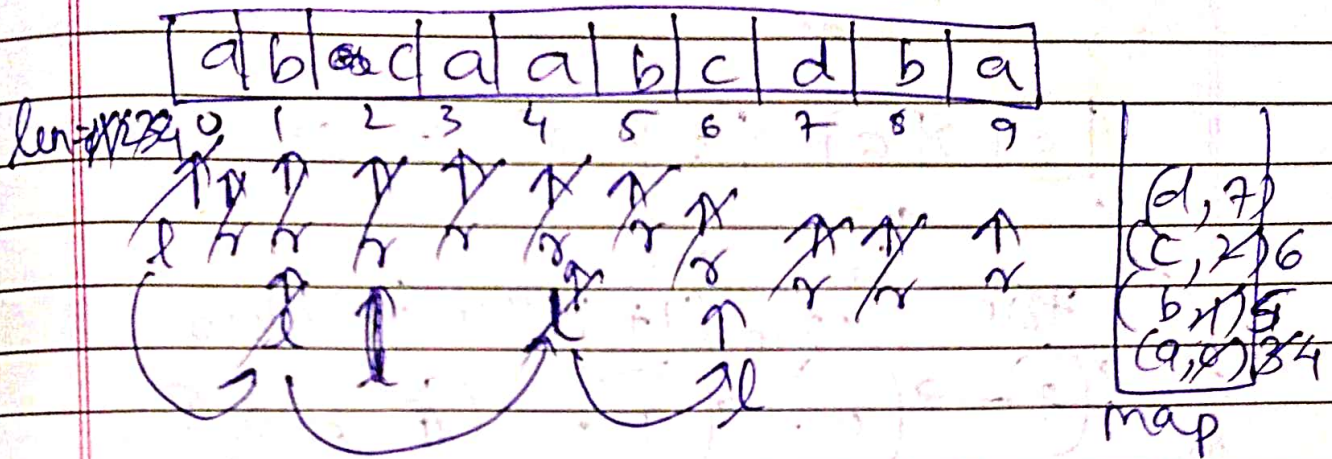 a b c a a b c d b a
len=
0 1 2 3 4 5 6 7 8 9
l r r r r r r r r r r
l l l l
(d, 7)
(c, 2) 6
(b, 1) 5
(a, 0) 3 4
map